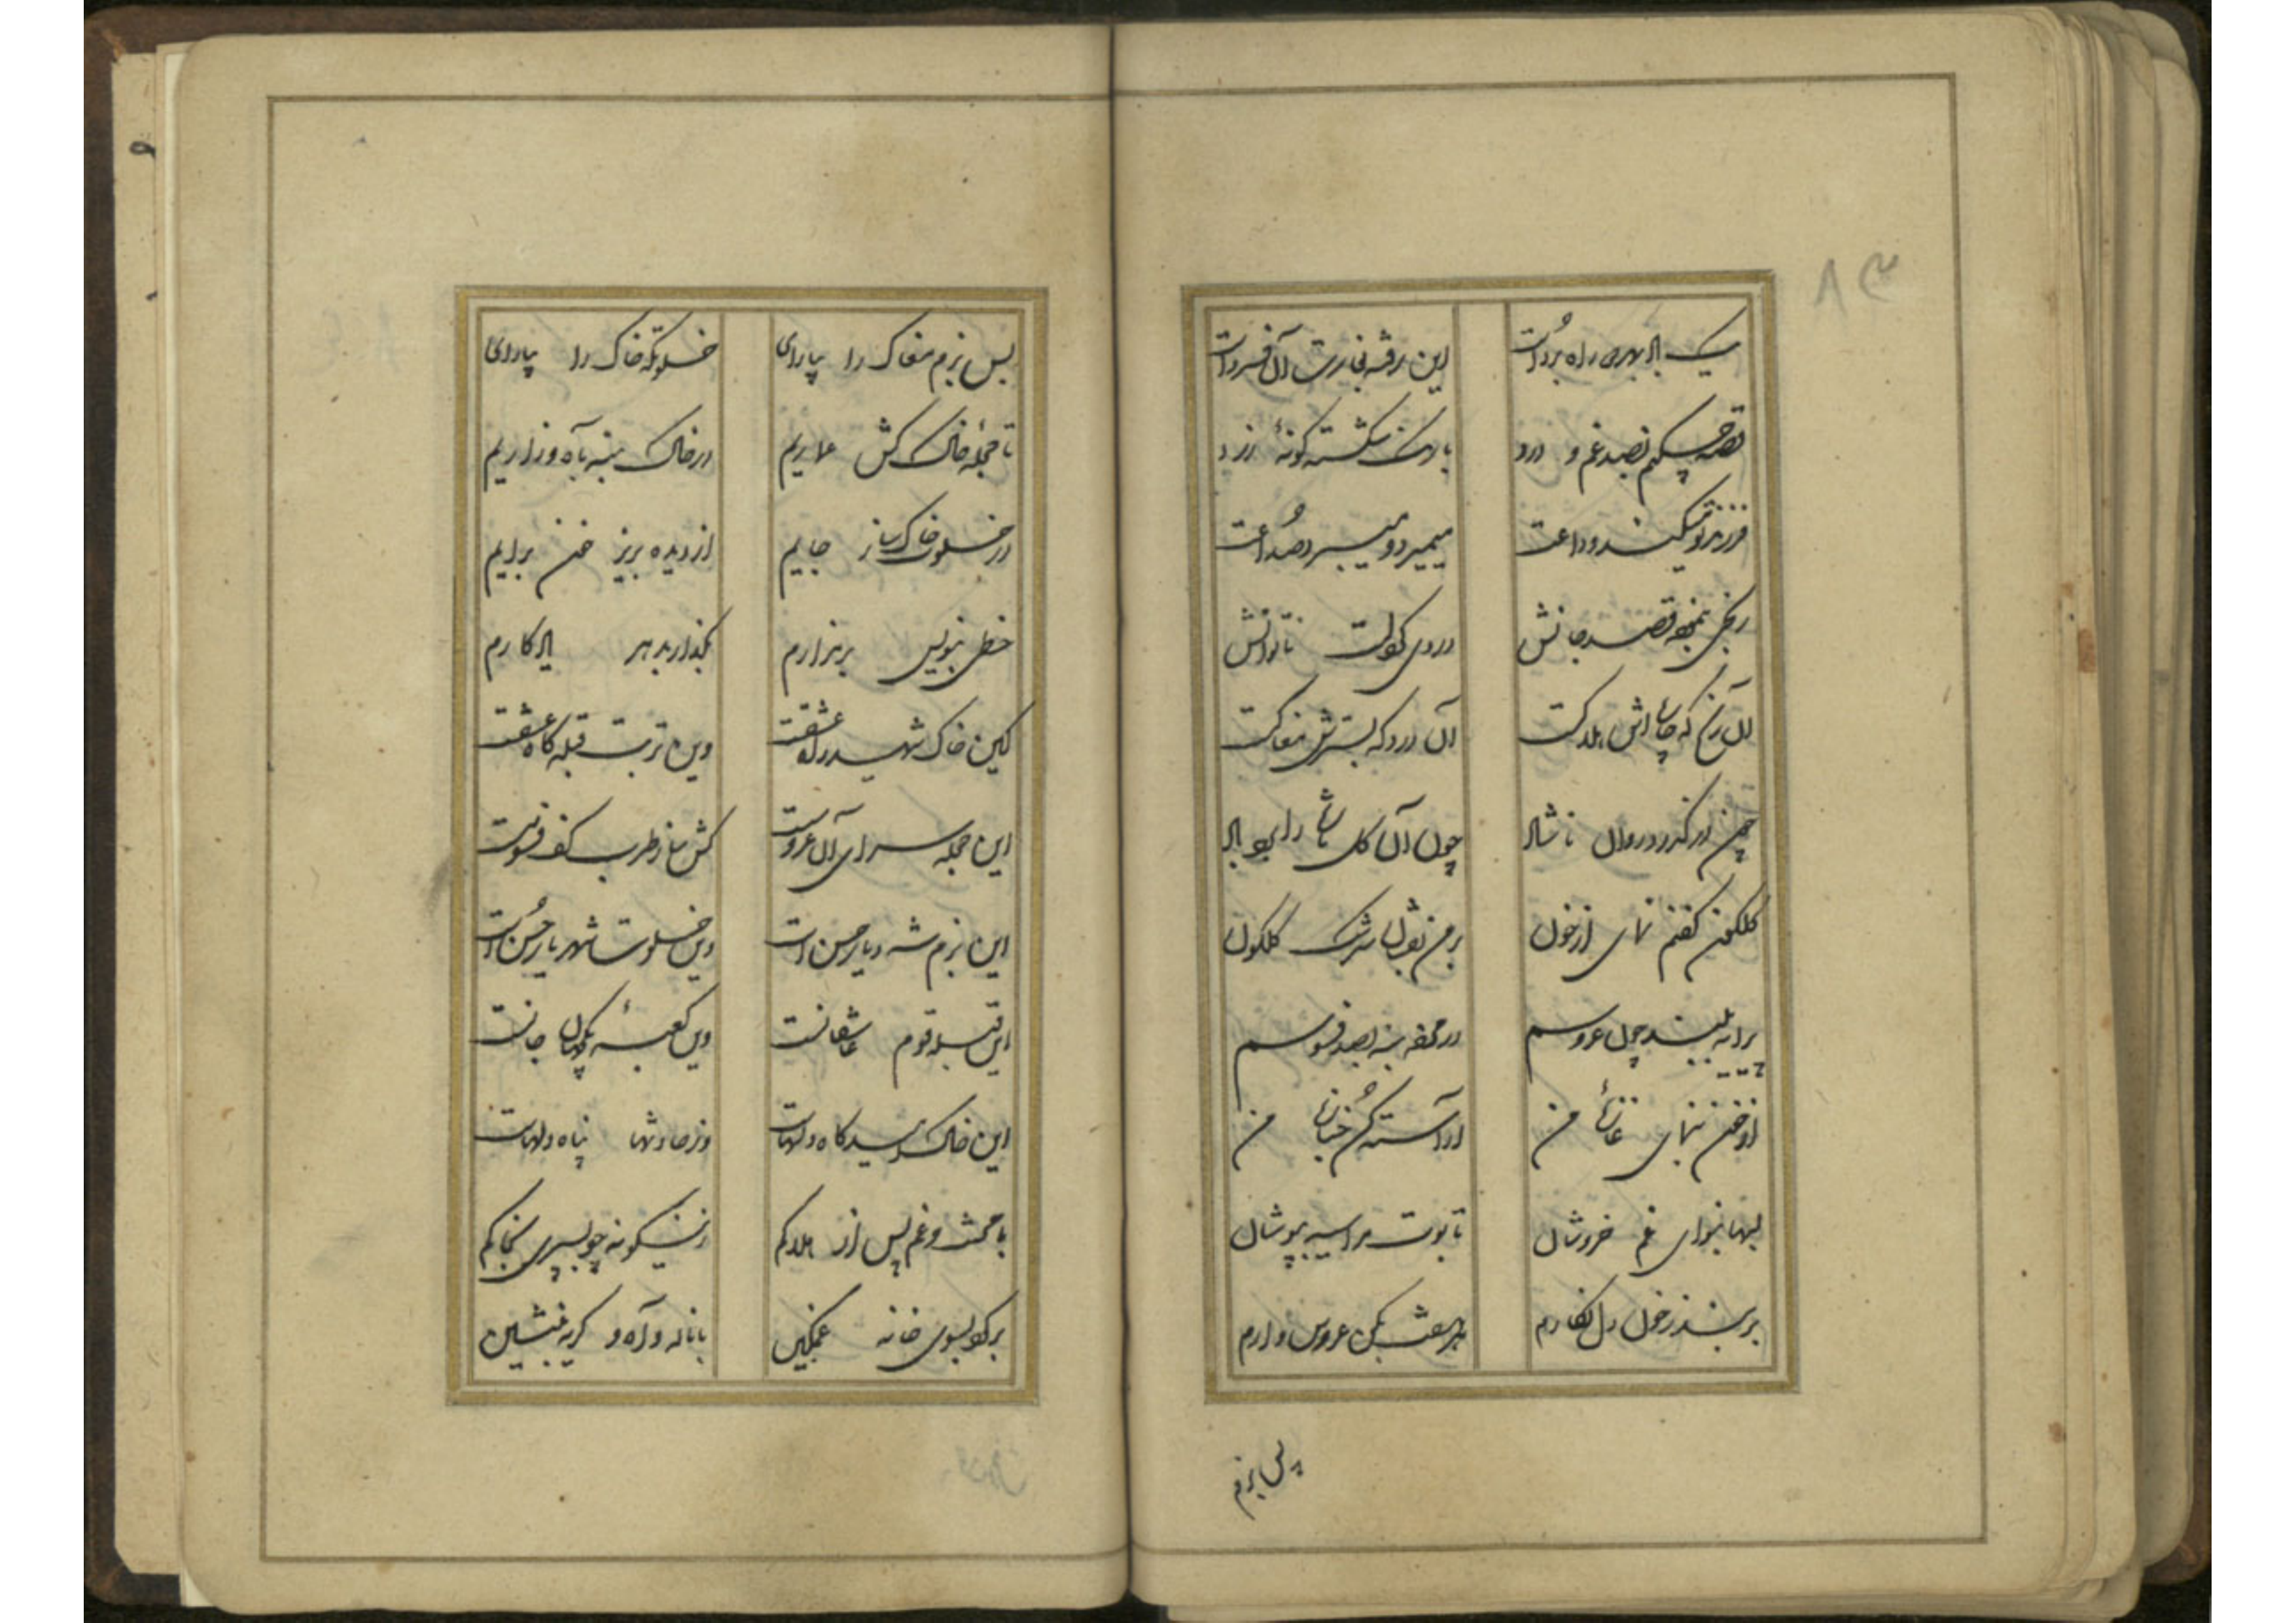 ۸۳
یک باد بهر دو راه بر داشت این رفته بغارت آن فسرداشت
قصه چکنم بصد غم و درد با رنگ شکسته گونهٔ زرد
فرزند تو میکند وداعت میمیرد و میبرد صداعت
رنجی بنهفته قصد جانش دردی بگرفت ناتوانش
آن رنج که چاره‌اش هلاکست آن درد که بسترش مغاکست
چون درگذرد روان ناشاد چون آن گل تازه را برد باد
گلگون کفنم نمای از خون بر من بفشان سرشک گلگون
پیرایه ببند چون عروسم در محفه بنه بصد فسوسم
از خون بنمای غازهٔ من آراسته کن جنازهٔ من
لبها بنوای غم خروشان تابوت مرا سیه بپوشان
بربند ز خون دل نگارم بر نعش بکن عروس‌وارم
پس بزم
پس بزم مغاک را بیارای خلوتگه خاک را بیارای
تا حجلهٔ خاک کش عماریم در خاک بنه بآه و زاریم
در خلوت خاک ساز جایم از دیده بریز خون برایم
خطی بنویس بر مزارم بگذار بدهر یادگارم
کاین خاک شهید راه عشقست وین تربت قبله‌گاه عشقست
این حجله سرای آن عروسست کش ساز طرب کف فسوسست
این بزم شه دیار حسن است وین خلوت شهریار حسن است
این قبلهٔ قوم عاشقانست وین کعبهٔ بیدلان جانست
این خاک امیدگاه دلهاست وز حادثها پناه دلهاست
با محنت و غم پس از هلاکم زینگونه چو بسپری بخاکم
برگرد بسوی خانه غمگین با ناله و آه و گریه بنشین